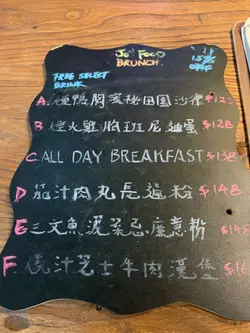 JO FOOD
BRUNCH.
15%
OFF
FREE SELECT
DRINK
A. 煙鴨胸蜜秘田園沙律 $12
B 煙火雞胸班尼迪蛋 $128
C. ALL DAY BREAKFAST $138
D 茄汁肉丸長通粉 $148
E 三文魚菠菜忌廉意粉 $148
F. 燒汁芝士牛肉漢堡 $16